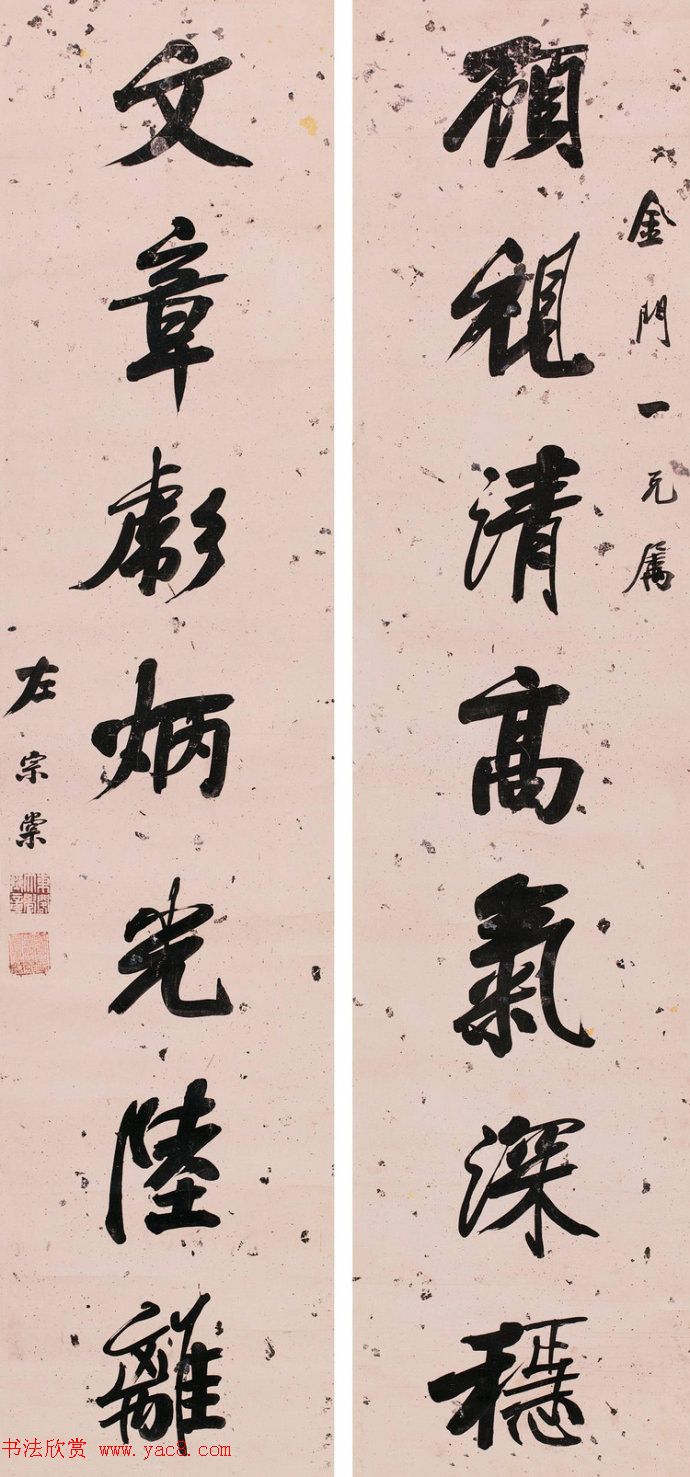 金門一兄属
顧視清高氣深穩
文章彪炳光陸離
左宗棠
书法欣赏 www.yac8.com